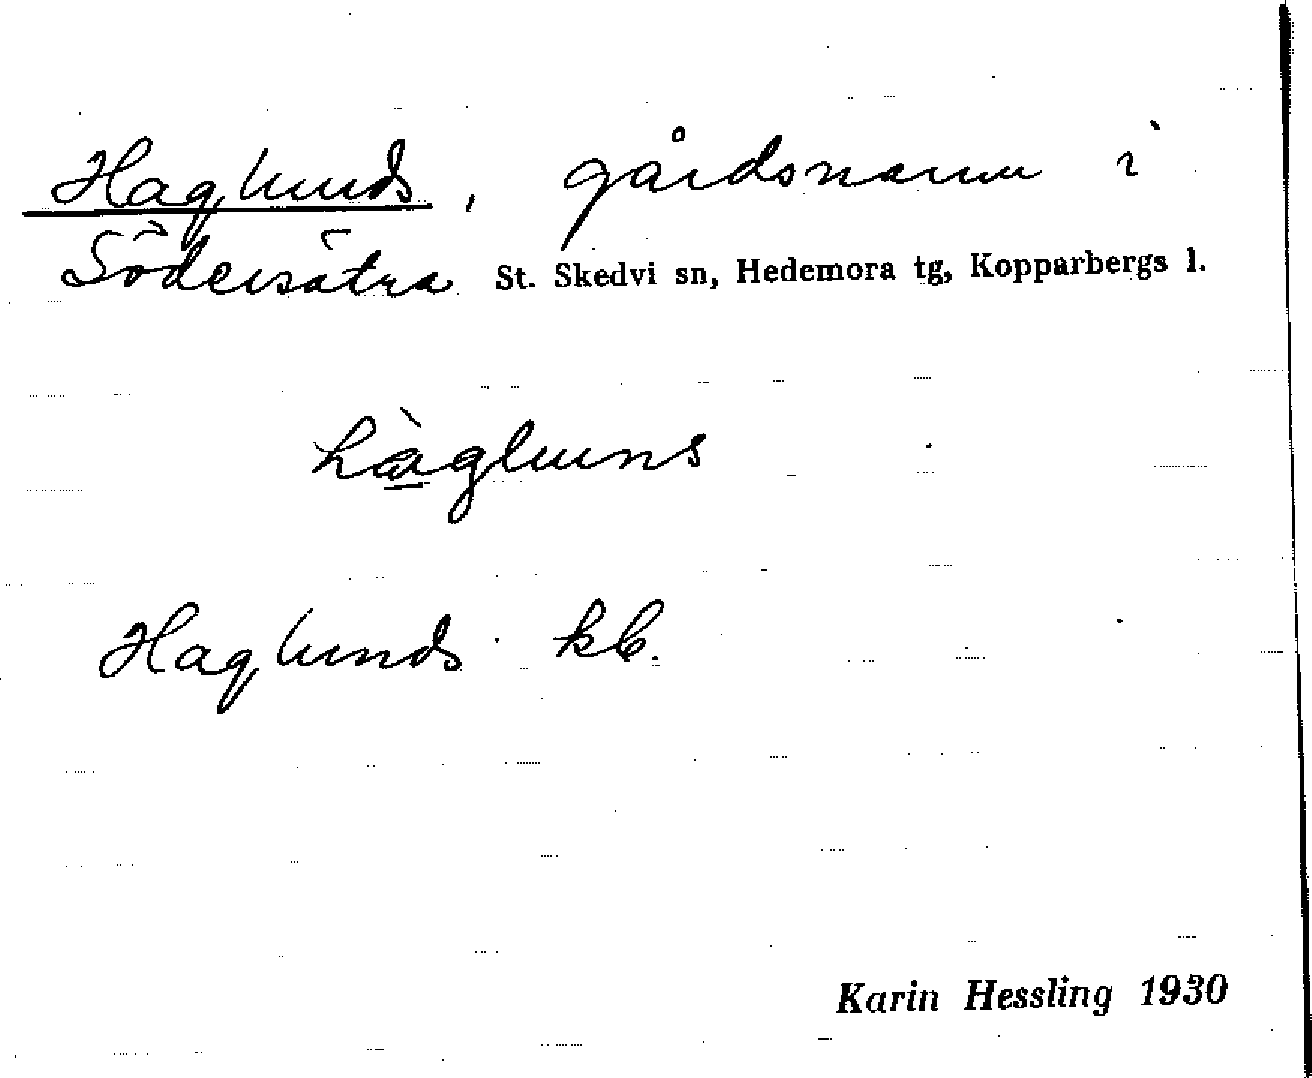 Haglunds, gårdsnamn i
Södersätra St. Skedvi sn, Hedemora tg, Kopparbergs l.
hàglu̇ns
Haglunds kb.
Karin Hessling 1930